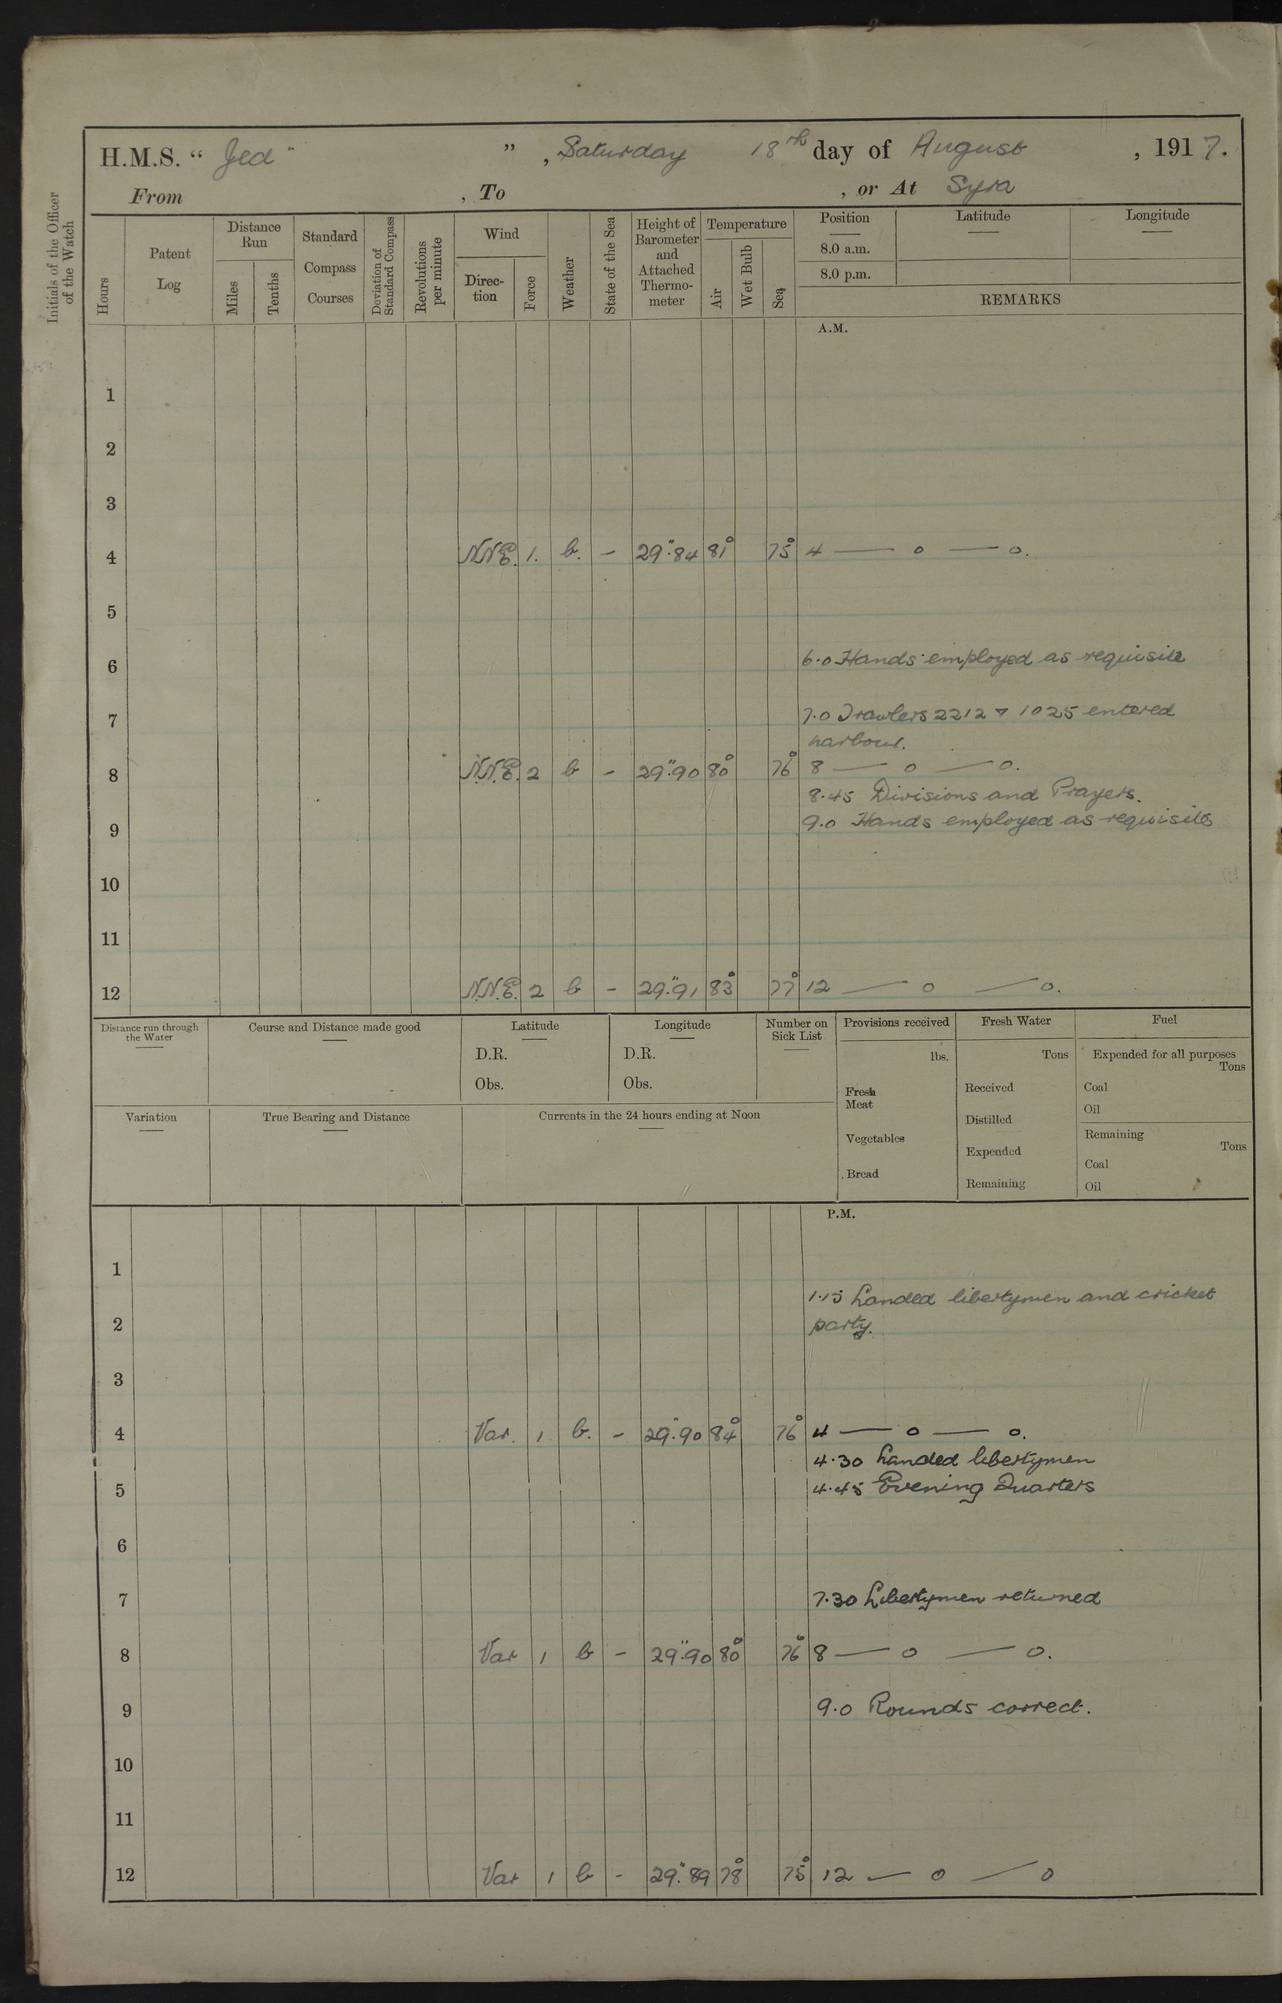 H.M.S. “ Jed ” , Saturday 18th day of August , 1917.
From , To , or At Syra
Initials of the Officer of the Watch
Hours
Patent Log
Distance Run
Miles
Tenths
Standard Compass Courses
Deviation of Standard Compass
Revolutions per minute
Wind
Direction
Force
Weather
State of the Sea
Height of Barometer and Attached Thermometer
Temperature
Air
Wet Bulb
Sea
Position
8.0 a.m.
8.0 p.m.
Latitude
Longitude
REMARKS
A.M.
1
2
3
4 N.N.E. 1. b. - 29".84 81° 75° 4 — o — o.
5
6 6.0 Hands employed as requisite
7 7.0 Trawlers 2212 & 1025 entered
harbour.
8 N.N.E. 2 b - 29".90 80° 76° 8 — o — o.
8.45 Divisions and Prayers.
9 9.0 Hands employed as requisite
10
11
12 N.N.E. 2 b - 29".91 83° 77° 12 — o — o.
Distance run through the Water
Course and Distance made good
Latitude
D.R.
Obs.
Longitude
D.R.
Obs.
Number on Sick List
Provisions received
lbs.
Fresh Meat
Vegetables
Bread
Fresh Water
Tons
Received
Distilled
Expended
Remaining
Fuel
Expended for all purposes
Tons
Coal
Oil
Remaining
Tons
Coal
Oil
Variation
True Bearing and Distance
Currents in the 24 hours ending at Noon
P.M.
1
1.15 Landed libertymen and cricket
2 party.
3
4 Var. 1 b. - 29".90 84° 76° 4 — o — o.
4.30 Landed libertymen
5 4.45 Evening Quarters
6
7 7.30 Libertymen returned
8 Var 1 b - 29".90 80° 76° 8 — o — o.
9 9.0 Rounds correct.
10
11
12 Var 1 b - 29".89 78° 75° 12 — o — o